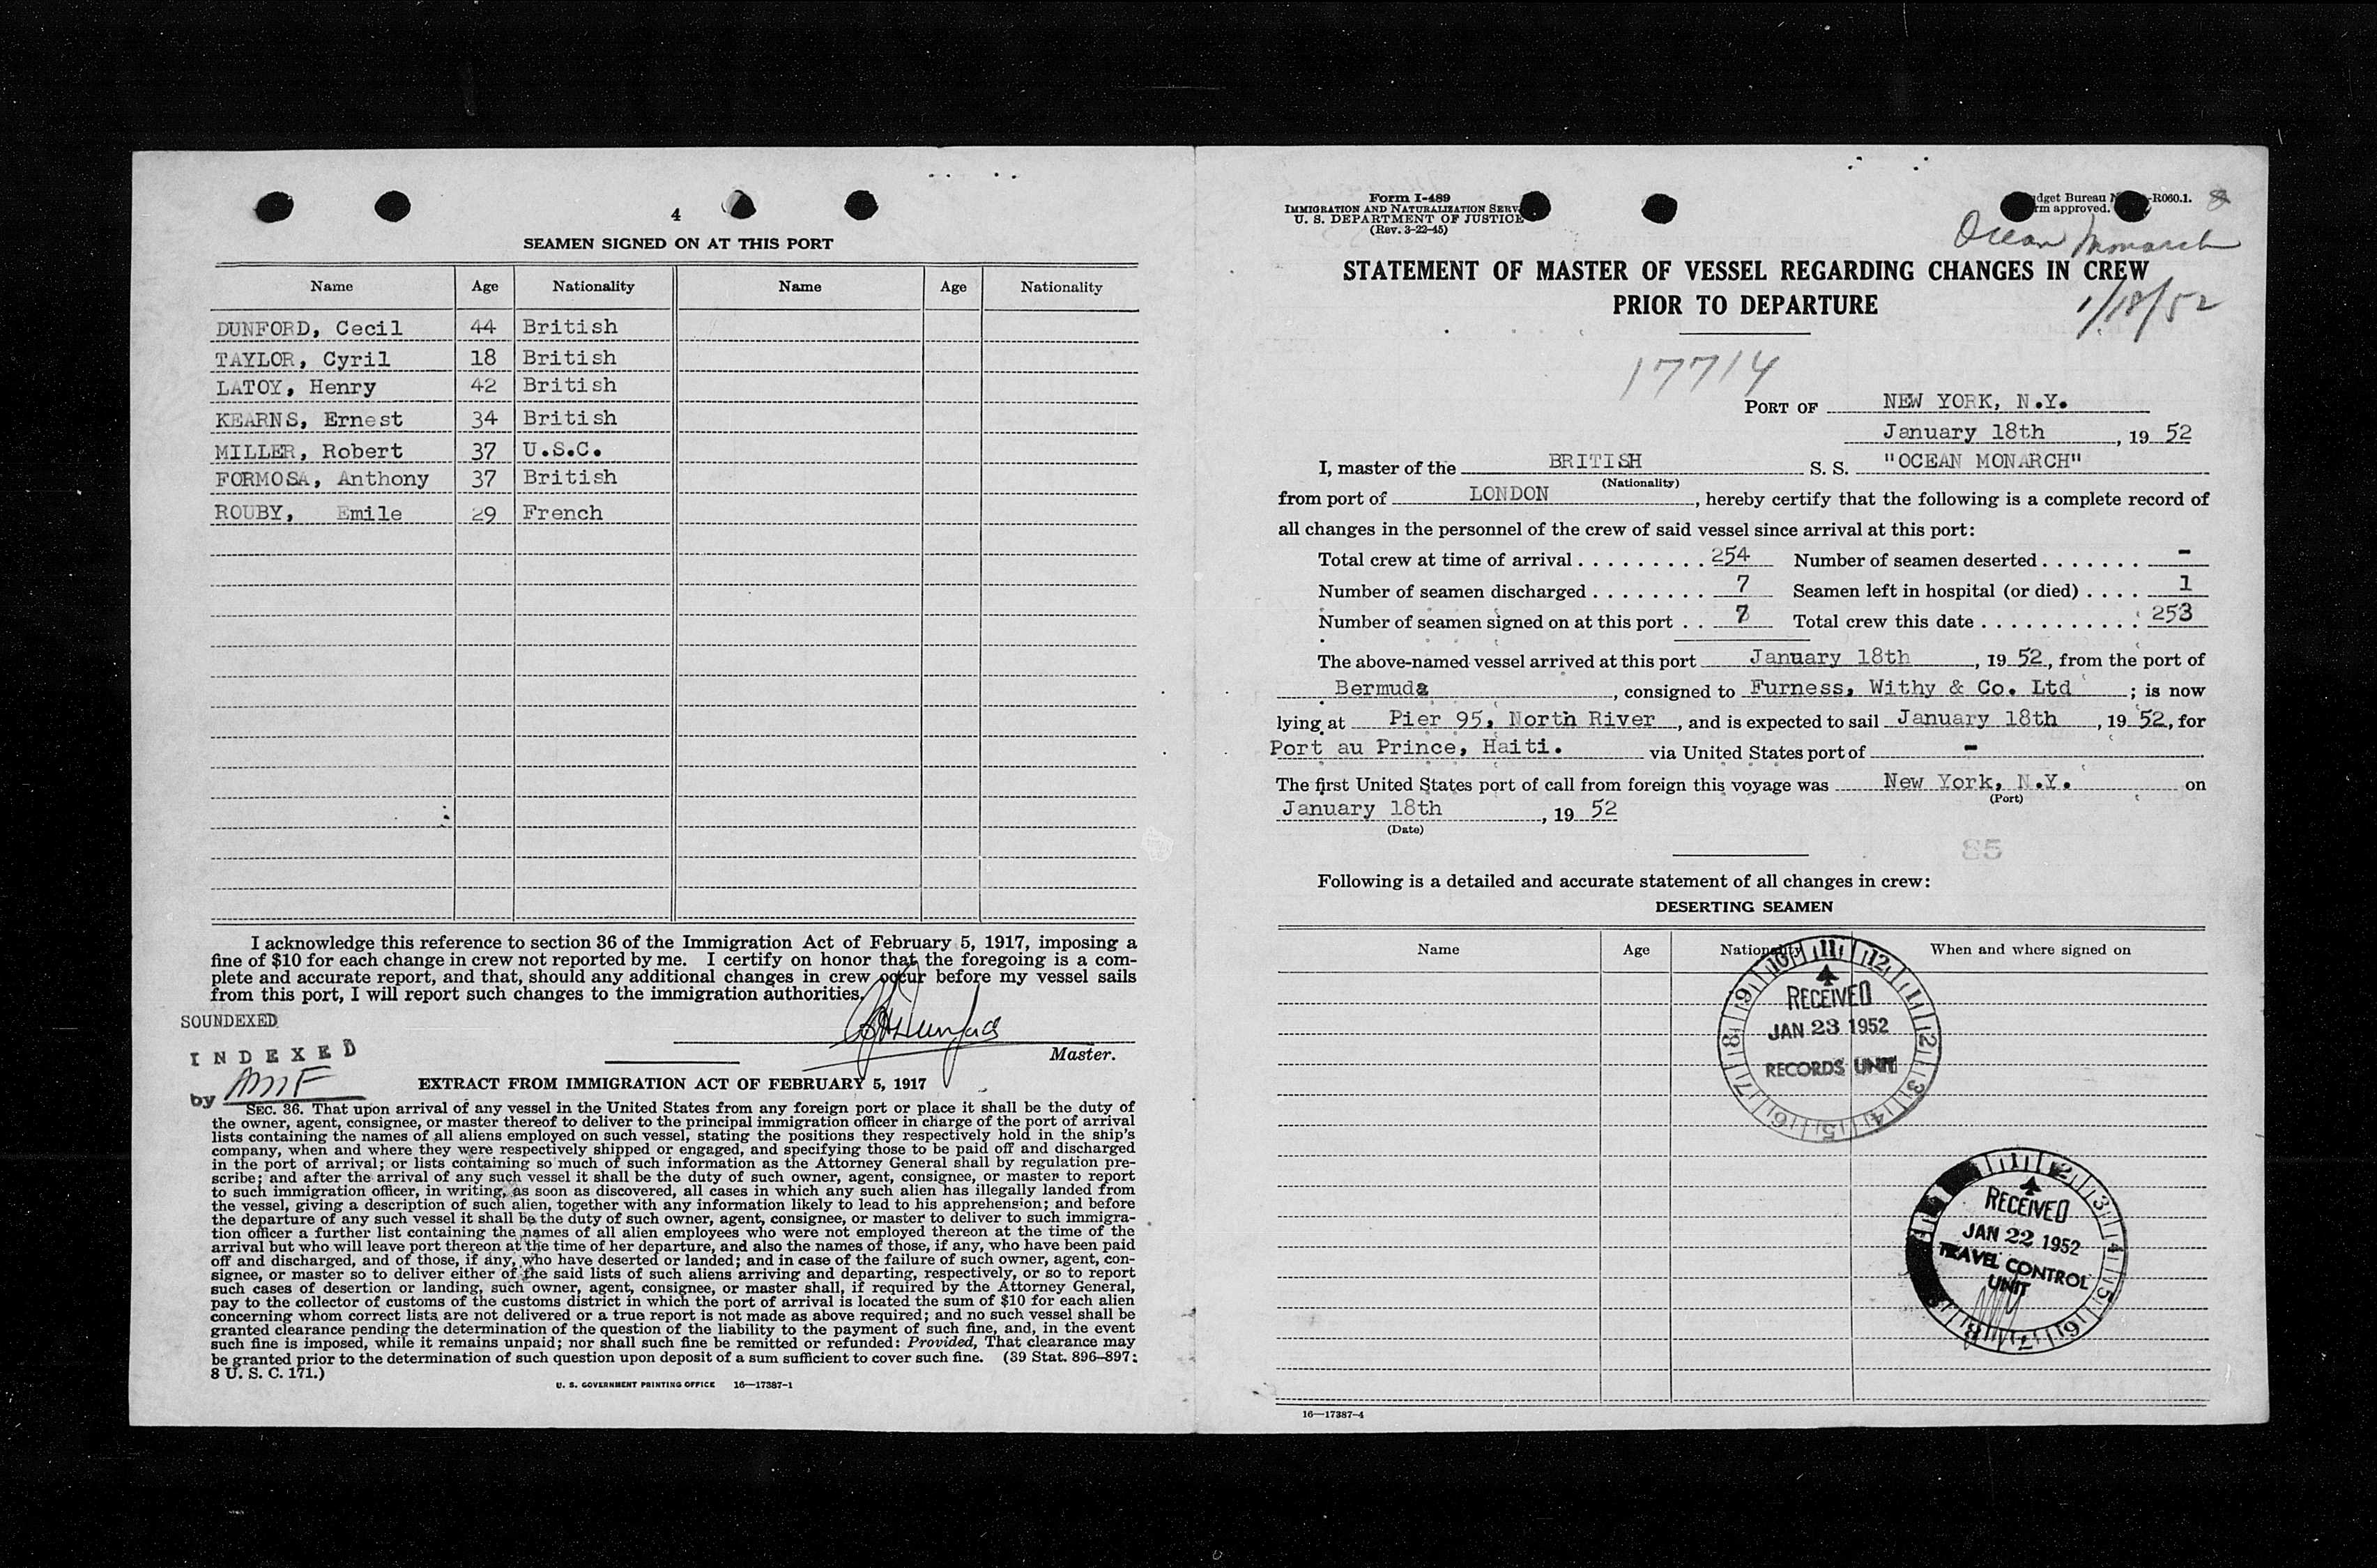 4
SEAMEN SIGNED ON AT THIS PORT
Name Age Nationality Name Age Nationality
DUNFORD, Cecil 44 British
TAYLOR, Cyril 18 British
LATOY, Henry 42 British
KEARNS, Ernest 34 British
MILLER, Robert 37 U.S.C.
FORMOSA, Anthony 37 British
ROUBY, Emile 29 French
I acknowledge this reference to section 36 of the Immigration Act of February 5, 1917, imposing a
fine of $10 for each change in crew not reported by me. I certify on honor that the foregoing is a com-
plete and accurate report, and that, should any additional changes in crew occur before my vessel sails
from this port, I will report such changes to the immigration authorities.
SOUNDEXED
INDEXED
Master.
by AMF
EXTRACT FROM IMMIGRATION ACT OF FEBRUARY 5, 1917
SEC. 36. That upon arrival of any vessel in the United States from any foreign port or place it shall be the duty of
the owner, agent, consignee, or master thereof to deliver to the principal immigration officer in charge of the port of arrival
lists containing the names of all aliens employed on such vessel, stating the positions they respectively hold in the ship's
company, when and where they were respectively shipped or engaged, and specifying those to be paid off and discharged
in the port of arrival; or lists containing so much of such information as the Attorney General shall by regulation pre-
scribe; and after the arrival of any such vessel it shall be the duty of such owner, agent, consignee, or master to report
to such immigration officer, in writing, as soon as discovered, all cases in which any such alien has illegally landed from
the vessel, giving a description of such alien, together with any information likely to lead to his apprehension; and before
the departure of any such vessel it shall be the duty of such owner, agent, consignee, or master to deliver to such immigra-
tion officer a further list containing the names of all alien employees who were not employed thereon at the time of the
arrival but who will leave port thereon at the time of her departure, and also the names of those, if any, who have been paid
off and discharged, and of those, if any, who have deserted or landed; and in case of the failure of such owner, agent, con-
signee, or master so to deliver either of the said lists of such aliens arriving and departing, respectively, or so to report
such cases of desertion or landing, such owner, agent, consignee, or master shall, if required by the Attorney General,
pay to the collector of customs of the customs district in which the port of arrival is located the sum of $10 for each alien
concerning whom correct lists are not delivered or a true report is not made as above required; and no such vessel shall be
granted clearance pending the determination of the question of the liability to the payment of such fine, and, in the event
such fine is imposed, while it remains unpaid; nor shall such fine be remitted or refunded: Provided, That clearance may
be granted prior to the determination of such question upon deposit of a sum sufficient to cover such fine. (39 Stat. 896–897;
8 U. S. C. 171.)
U. S. GOVERNMENT PRINTING OFFICE 16—17387-1
Form I-489
IMMIGRATION AND NATURALIZATION SERV
U. S. DEPARTMENT OF JUSTICE
(Rev. 3-22-45)
dget Bureau N -R060.1.
rm approved.
8
Ocean Monarch
STATEMENT OF MASTER OF VESSEL REGARDING CHANGES IN CREW
PRIOR TO DEPARTURE
1/18/52
17714
PORT OF NEW YORK, N.Y.
January 18th, 19 52
I, master of the BRITISH S. S. "OCEAN MONARCH"
(Nationality)
from port of LONDON, hereby certify that the following is a complete record of
all changes in the personnel of the crew of said vessel since arrival at this port:
Total crew at time of arrival 254 Number of seamen deserted -
Number of seamen discharged 7 Seamen left in hospital (or died) 1
Number of seamen signed on at this port 7 Total crew this date 253
The above-named vessel arrived at this port January 18th, 19 52, from the port of
Bermuda, consigned to Furness, Withy & Co. Ltd; is now
lying at Pier 95, North River, and is expected to sail January 18th, 19 52, for
Port au Prince, Haiti. via United States port of -
The first United States port of call from foreign this voyage was New York, N.Y. on
(Port)
January 18th, 19 52
(Date)
85
Following is a detailed and accurate statement of all changes in crew:
DESERTING SEAMEN
Name Age Nationality When and where signed on
RECEIVED
JAN 23 1952
RECORDS UNIT
RECEIVED
JAN 22 1952
TRAVEL CONTROL
UNIT
16—17387-4